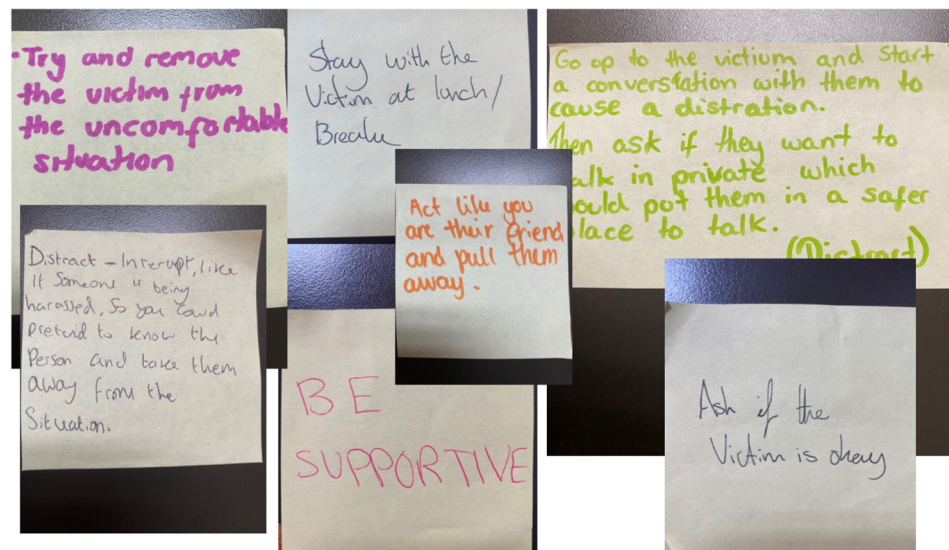 • Try and remove
the victim from
the uncomfortable
situation
Stay with the
Victim at lunch/
Break
Go op to the victium and start
a converstation with them to
cause a distration.
Then ask if they want to
alk in private which
ould put them in a safer
lace to talk.
(Distract)
Act like you
are their friend
and pull them
away.
Distract – Interupt, like
if someone is being
harassed, so you could
pretend to know the
Person and take them
away from the
Situation.
BE
SUPPORTIVE
Ask if the
Victim is okay